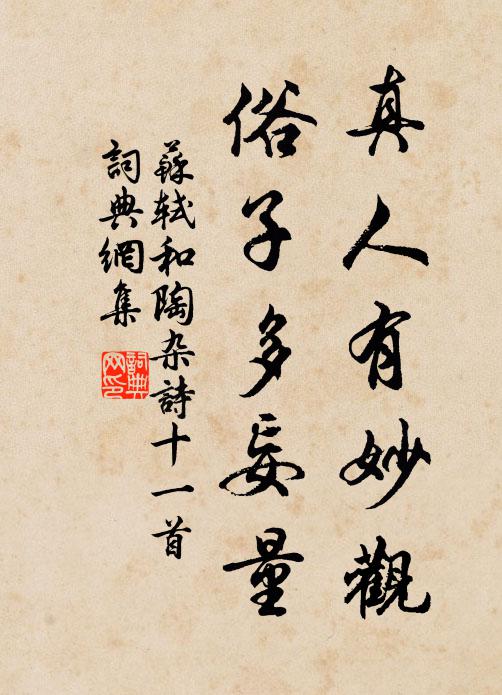 真人有妙觀
俗子多妄量
蘇軾和陶杂詩十一首
詞典網集
詞典网印